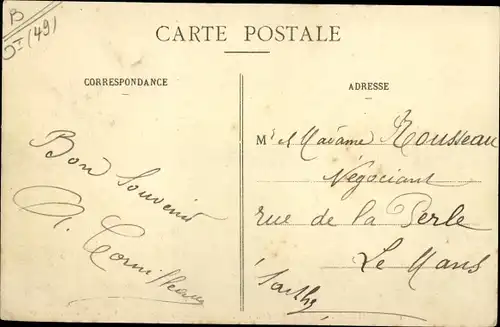 B
(49)
CARTE POSTALE
CORRESPONDANCE
Bon Souvenir
A. Cornilleau
ADRESSE
Mr et Madame Rousseau
Négociant
rue de la Perle
Le Mans
Sarthe